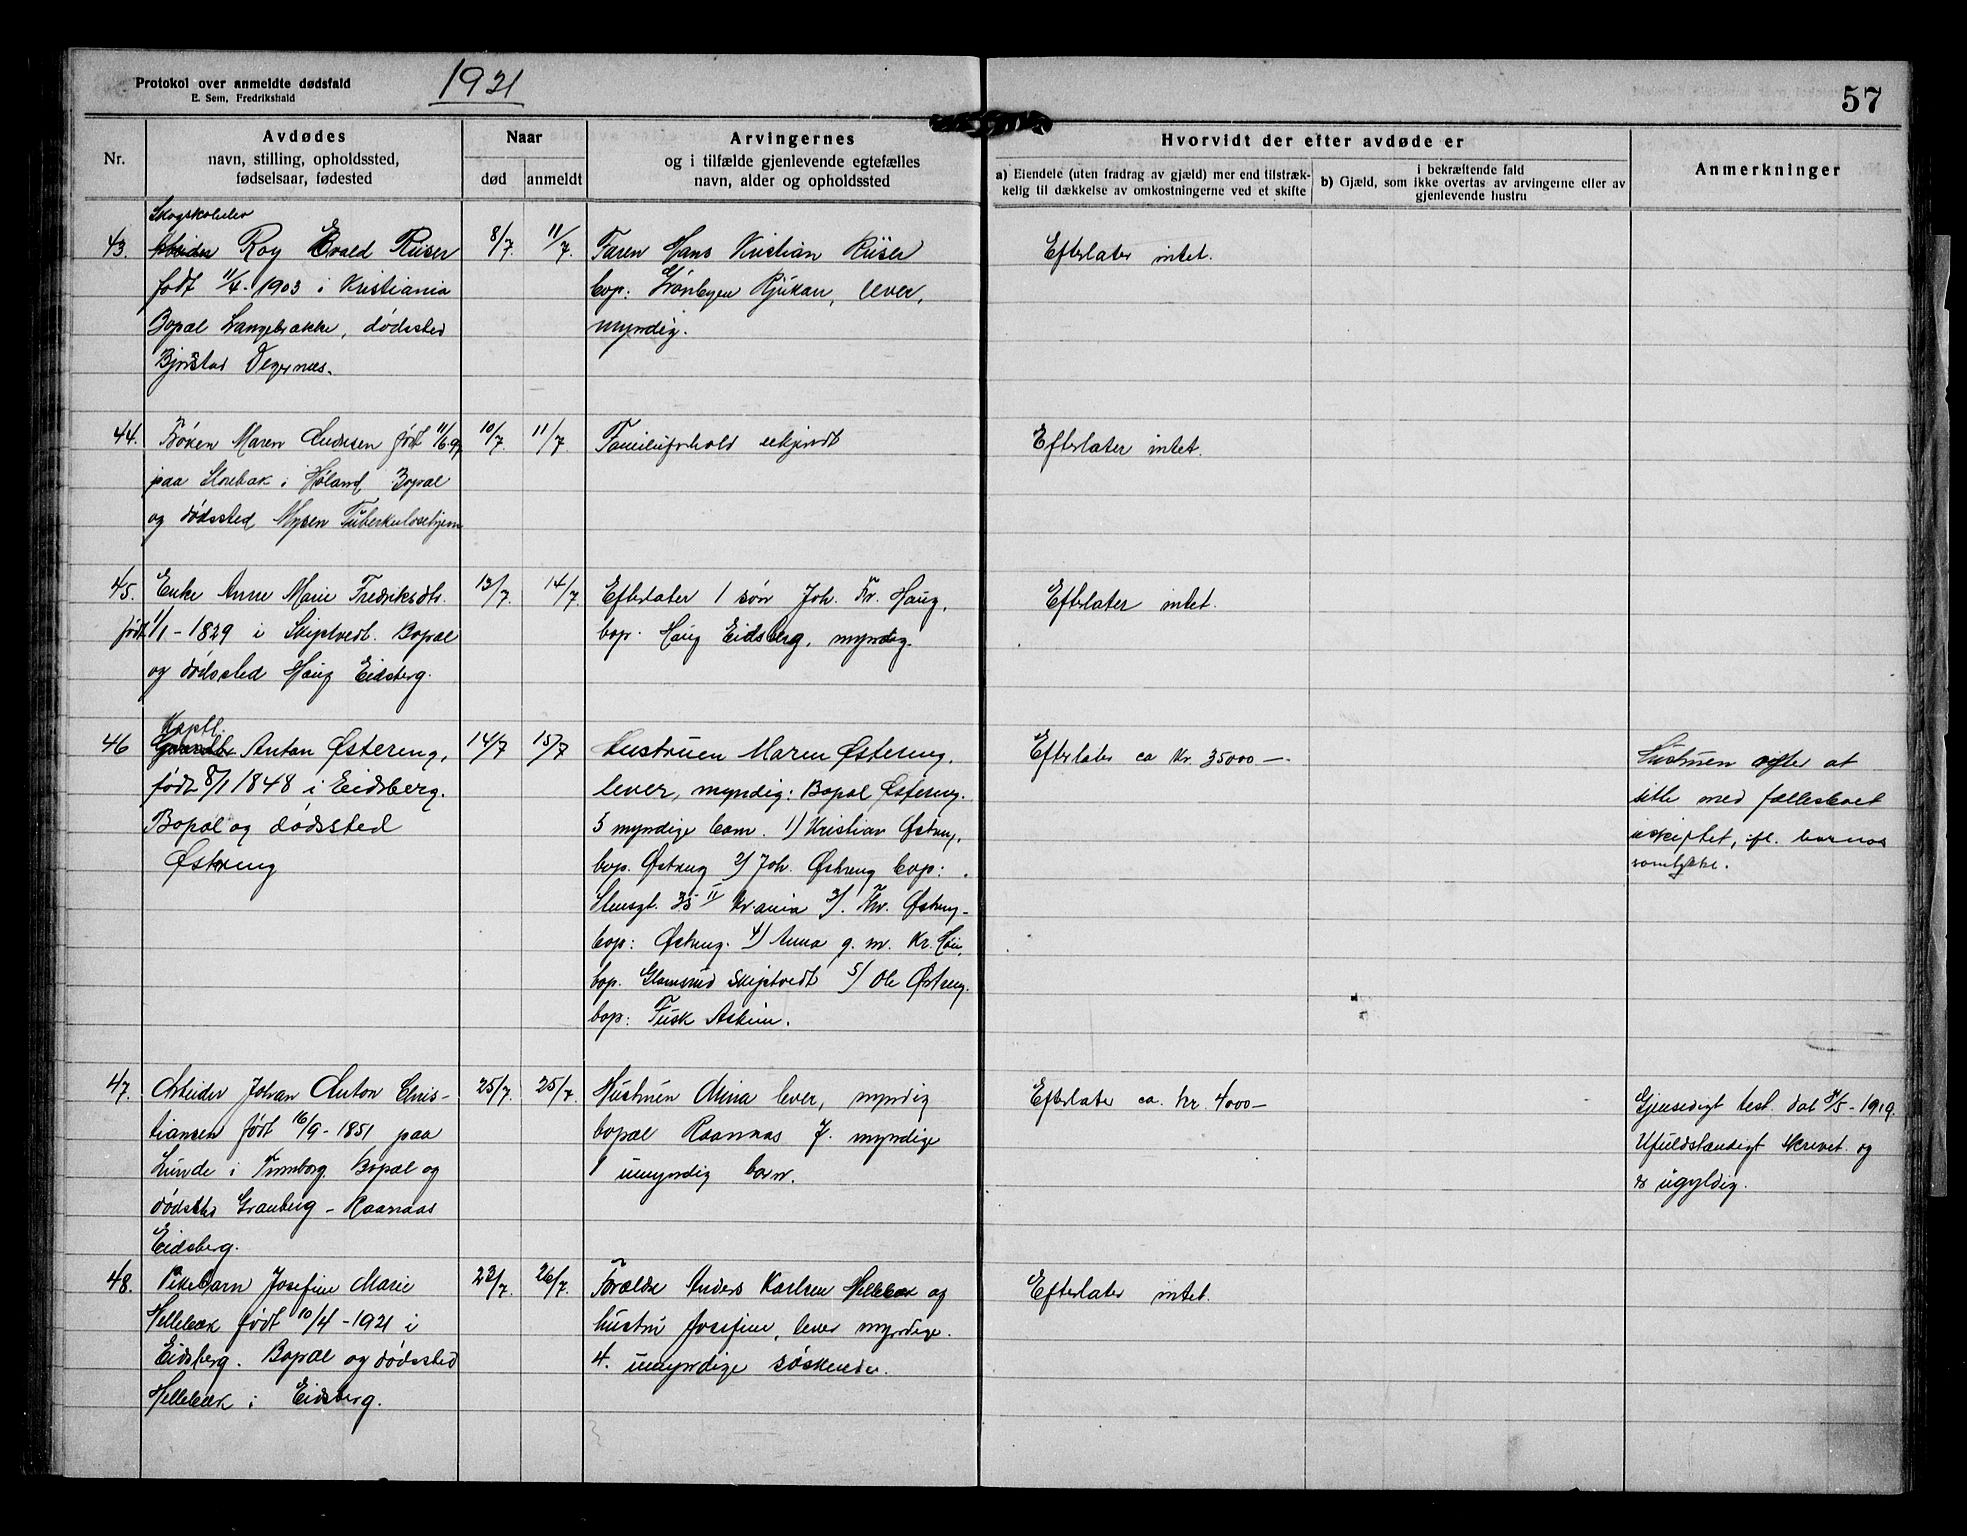 Protokol over anmeldte dødsfald
E. Sem, Fredrikshald
1921
57
Nr.
Avdødes
navn, stilling, opholdssted,
fødselsaar, fødested
Naar
død
anmeldt
Arvingernes
og i tilfælde gjenlevende egtefælles
navn, alder og opholdssted
Hvorvidt der efter avdøde er
a) Eiendele (uten fradrag av gjæld) mer end tilstræk-
kelig til dækkelse av omkostningerne ved et skifte
i bekræftende fald
b) Gjæld, som ikke overtas av arvingerne eller av
gjenlevende hustru
Anmerkninger
Skogskoleelev
43. Roy Evald Riiser
født 11/4-1903 i Kristiania
Bopæl Langebrække, dødssted
Bjørstad Degernæs.
8/7. 11/7.
Faren Hans Kristian Riiser
bop: Grønbyen Rjukan, lever,
myndig.
Efterlater intet.
44. Frøken Maren Andersen født 11/6.97
paa Storebak i Høland Bopæl
og dødssted Mysen Tuberkulosehjem
10/7. 11/7.
Familieforhold ukjendt
Efterlater intet.
45. Enke Anne Marie Fredriksdtr.
født 1/1-1829 i Skiptvedt. Bopæl
og dødssted Haug Eidsberg.
13/7. 14/7.
Efterlater 1 søn Joh. Fr. Haug,
bop. Haug Eidsberg, myndig.
Efterlater intet.
46 Anton Østereng,
født 8/1 1848 i Eidsberg.
Bopæl og dødssted
Østereng
14/7 15/7
Hustruen Maren Østereng,
lever, myndig: Bopæl Østereng.
5 myndige barn. 1) Kristian Østreng,
bop. Østreng 2) Joh. Østreng bop:
Stensgt. 35 II Kr.ania 3). Thr. Østreng
bop: Østreng. 4) Anna g. m. Kr. Høie,
bop. Glomsrud Skiptvedt 5) Ole Østreng.
bop: Tusk Askim.
Efterlater ca Kr. 35000 —.
Hustruen agter at
sitte med fællesboet
uskiftet, ifl. barnas
samtykke.
47. Arbeider Johan Anton Chris-
tiansen født 16/9-1851 paa
Lunde i Trømborg. Bopæl og
dødssted Granberg - Raanaas
Eidsberg.
25/7. 25/7.
Hustruen Mina lever, myndig
bopæl Raanaas 7. myndige
1 umyndig barn.
Efterlater ca. kr. 4000—
Gjensedigt test. dat /5-1919.
Ufuldstændigt skrevet og
er ugyldig.
48. Pikebarn Josefine Marie
Hellebæk født 10/4-1921 i
Eidsberg. Bopæl og dødssted
Hellebæk i Eidsberg.
22/7. 26/7.
Forældre Anders Karlsen Hellebæk og
hustru Josefine, lever myndige.
4. umyndige søskende.
Efterlater intet.